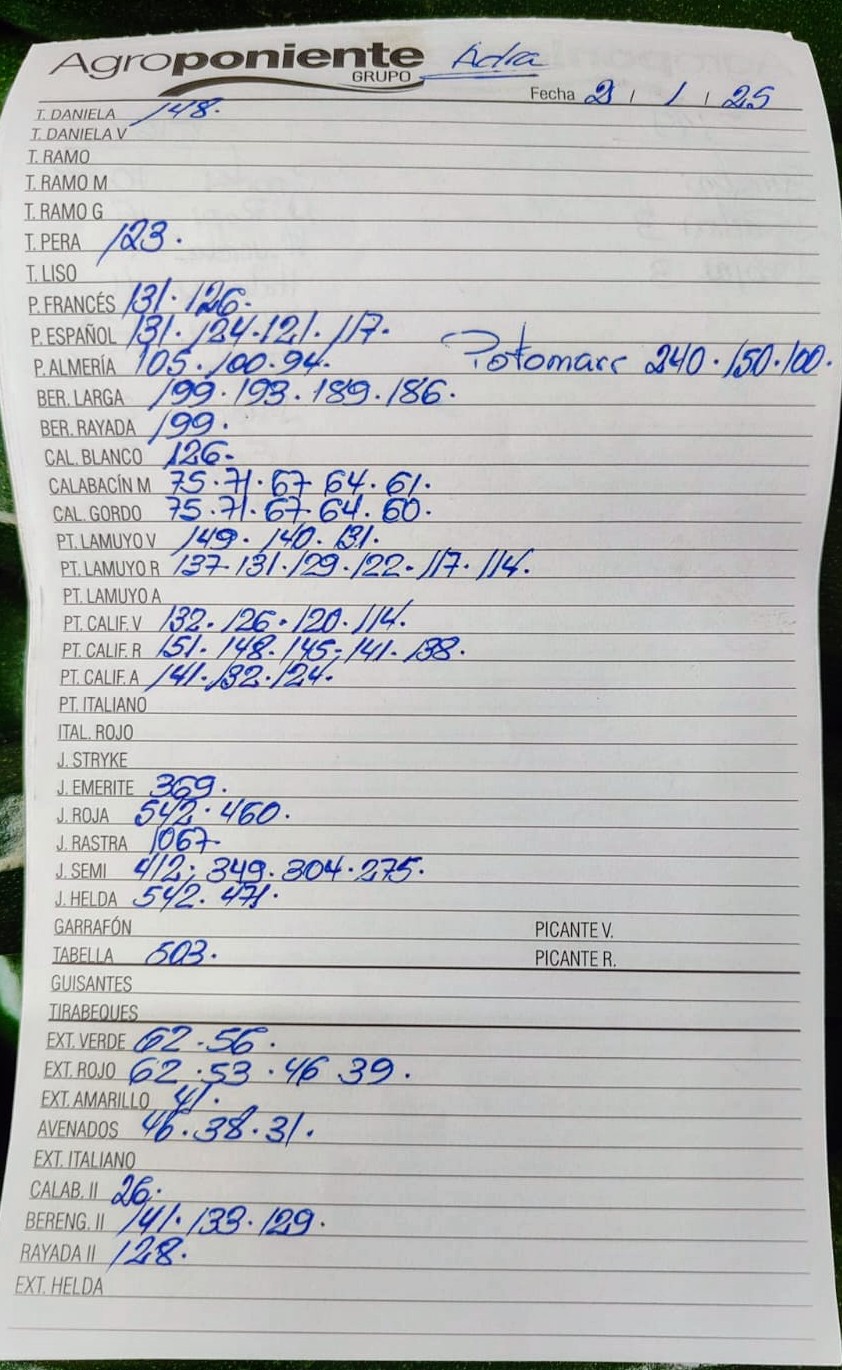 Agroponiente Adra
GRUPO
Fecha 2 / 1 / 25
T. DANIELA 148.
T. DANIELA V
T. RAMO
T. RAMO M
T. RAMO G
T. PERA 123.
T. LISO
P. FRANCÉS 131. 126.
P. ESPAÑOL 131. 124. 121. 117.
P. ALMERÍA 105. 100. 94. Potomarc 240. 150. 100.
BER. LARGA 199. 193. 189. 186.
BER. RAYADA 199.
CAL. BLANCO 126-
CALABACÍN M 75. 71. 67 64. 61.
CAL. GORDO 75. 71. 67- 64. 60.
PT. LAMUYO V 149. 140. 131.
PT. LAMUYO R 137- 131. 129. 122. 117. 114.
PT. LAMUYO A
PT. CALIF. V 132. 126. 120. 114.
PT. CALIF. R 151. 148. 145- 141. 138.
PT. CALIF. A 141. 132. 124.
PT. ITALIANO
ITAL. ROJO
J. STRYKE
J. EMERITE 369.
J. ROJA 542. 460.
J. RASTRA 1067-
J. SEMI 412. 349. 304. 275.
J. HELDA 542. 471.
GARRAFÓN PICANTE V.
TABELLA 503. PICANTE R.
GUISANTES
TIRABEQUES
EXT. VERDE 62. 56.
EXT. ROJO 62. 53. 46 39.
EXT. AMARILLO 41.
AVENADOS 46. 38. 31.
EXT. ITALIANO
CALAB. II 26.
BERENG. II 141. 133. 129.
RAYADA II 128.
EXT. HELDA